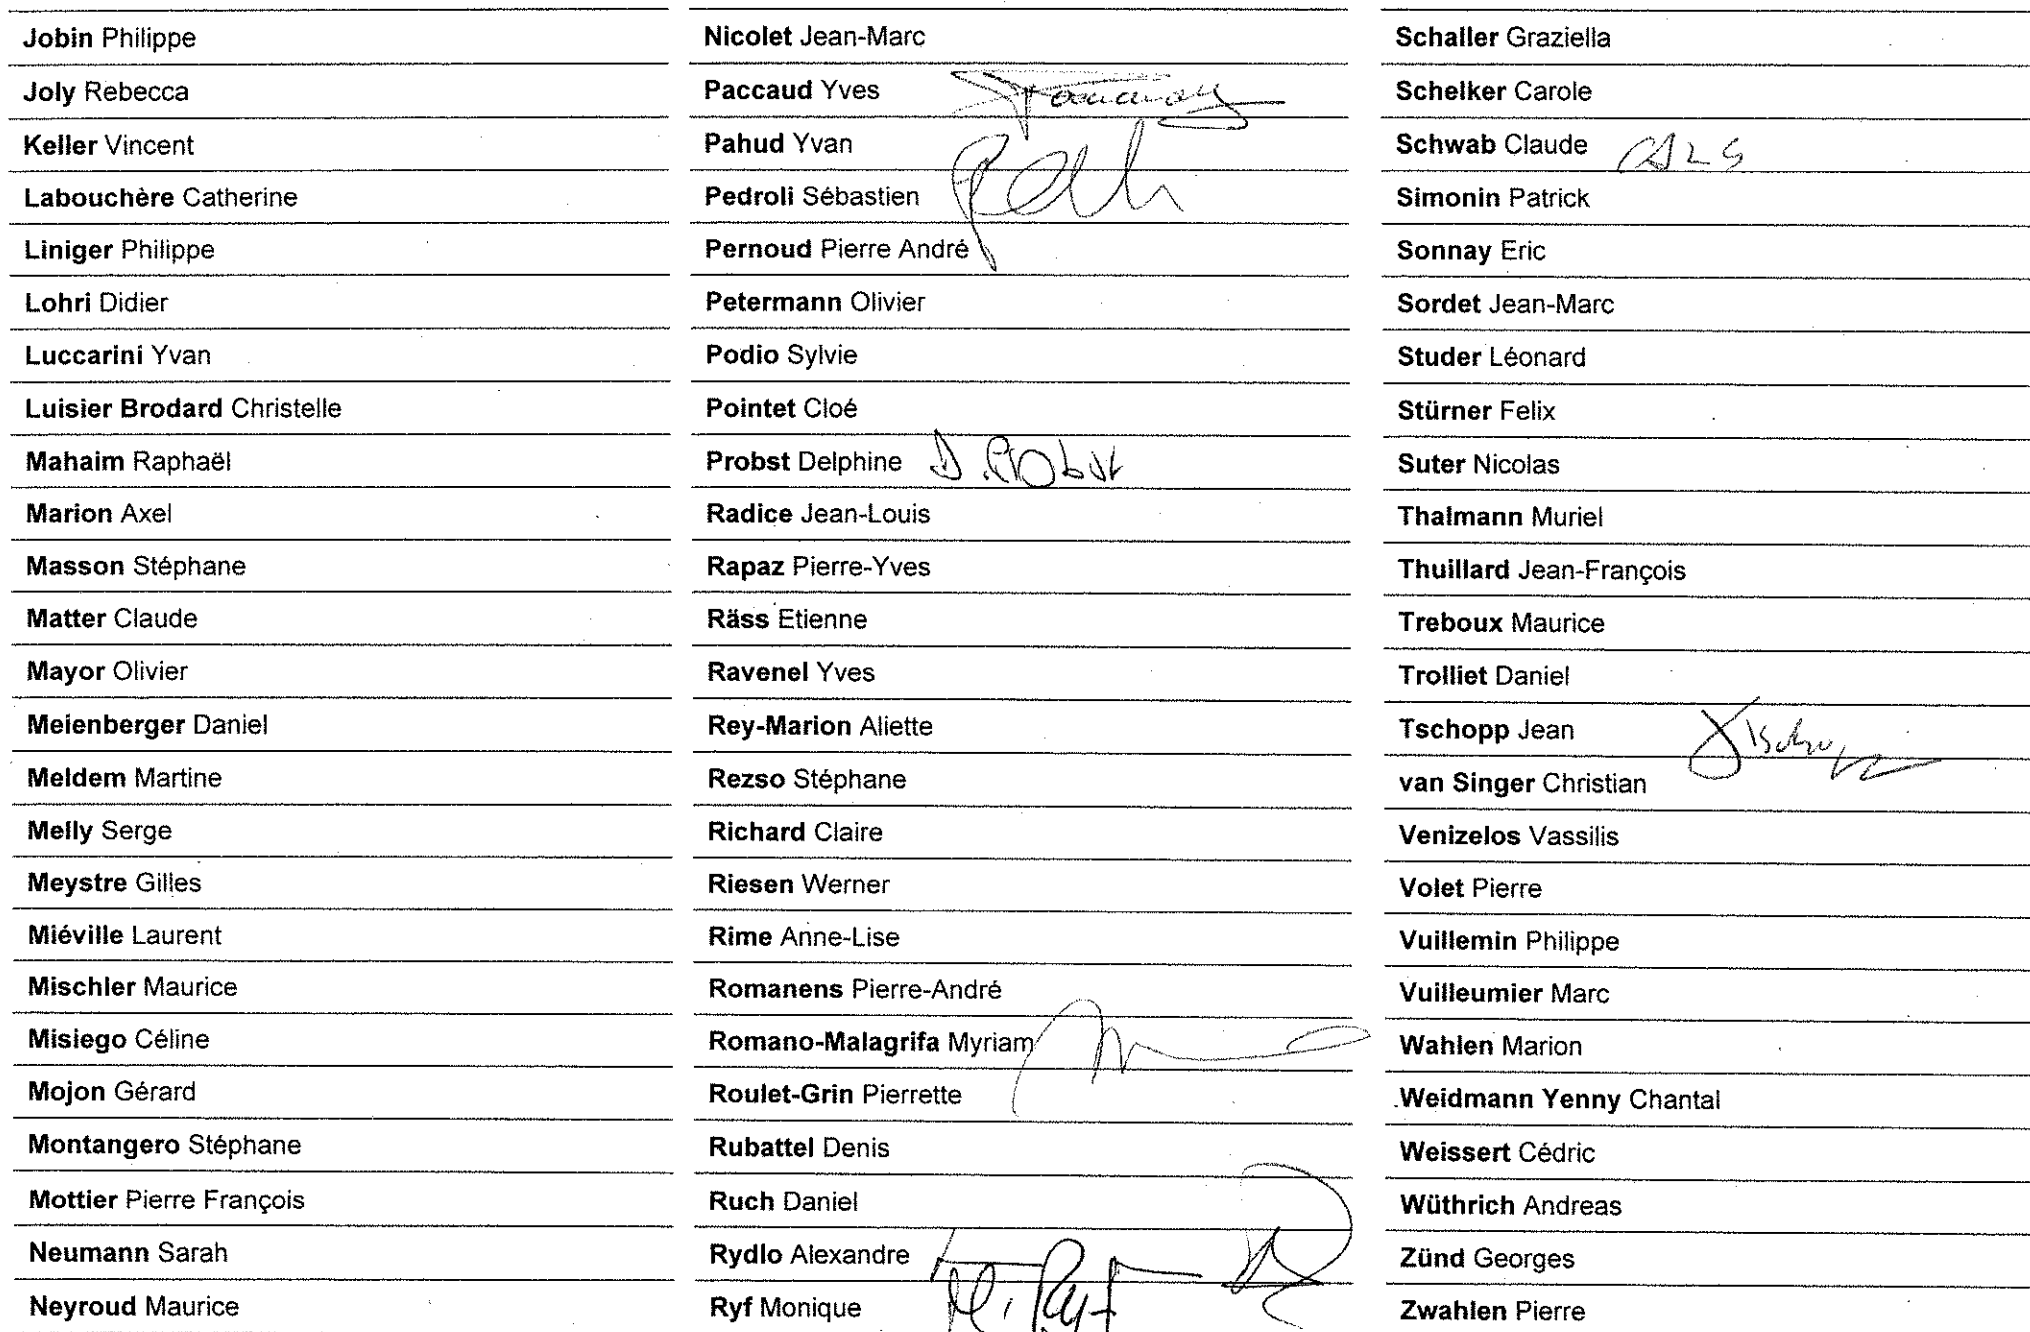 Jobin Philippe
Joly Rebecca
Keller Vincent
Labouchère Catherine
Liniger Philippe
Lohri Didier
Luccarini Yvan
Luisier Brodard Christelle
Mahaim Raphaël
Marion Axel
Masson Stéphane
Matter Claude
Mayor Olivier
Meienberger Daniel
Meldem Martine
Melly Serge
Meystre Gilles
Miéville Laurent
Mischler Maurice
Misiego Céline
Mojon Gérard
Montangero Stéphane
Mottier Pierre François
Neumann Sarah
Neyroud Maurice
Nicolet Jean-Marc
Paccaud Yves
Pahud Yvan
Pedroli Sébastien
Pernoud Pierre André
Petermann Olivier
Podio Sylvie
Pointet Cloé
Probst Delphine D. Probst
Radice Jean-Louis
Rapaz Pierre-Yves
Räss Etienne
Ravenel Yves
Rey-Marion Aliette
Rezso Stéphane
Richard Claire
Riesen Werner
Rime Anne-Lise
Romanens Pierre-André
Romano-Malagrifa Myriam
Roulet-Grin Pierrette
Rubattel Denis
Ruch Daniel
Rydlo Alexandre
Ryf Monique M. Ryf
Schaller Graziella
Schelker Carole
Schwab Claude
Simonin Patrick
Sonnay Eric
Sordet Jean-Marc
Studer Léonard
Stürner Felix
Suter Nicolas
Thalmann Muriel
Thuillard Jean-François
Treboux Maurice
Trolliet Daniel
Tschopp Jean JTschopp
van Singer Christian
Venizelos Vassilis
Volet Pierre
Vuillemin Philippe
Vuilleumier Marc
Wahlen Marion
Weidmann Yenny Chantal
Weissert Cédric
Wüthrich Andreas
Zünd Georges
Zwahlen Pierre